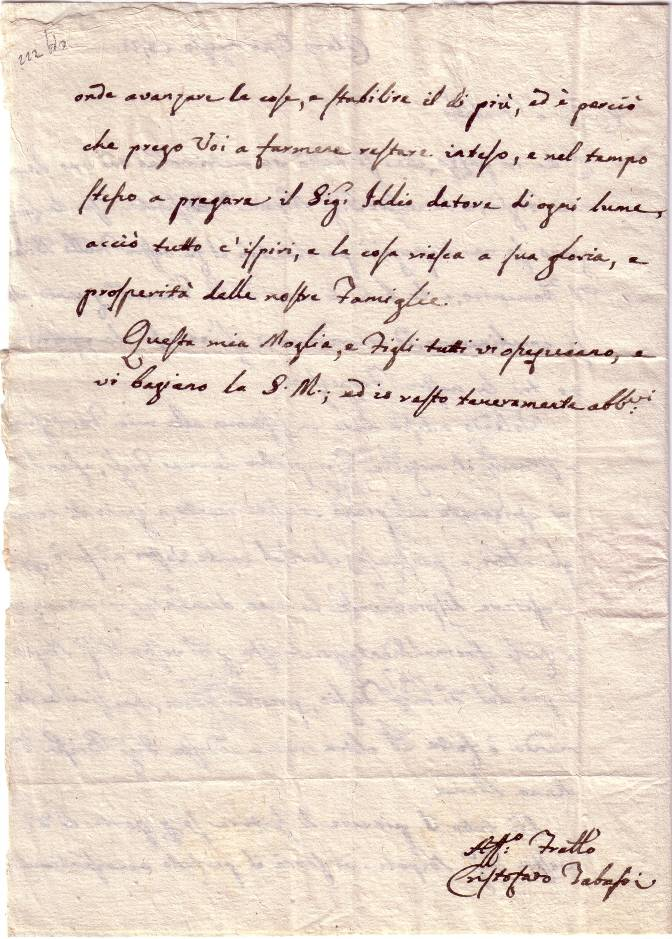 222 bis
onde avanzare le cose, e stabilire il di più, ed è perciò
che prego Voi a farmene restare inteso, e nel tempo
stesso a pregare il Sig: Iddio datore di ogni lume,
acciò tutto c'ispiri, e la cosa riesca a sua gloria, e
prosperità delle nostre Famiglie.
Questa mia Moglie, e Figli tutti vi ossequiano, e
vi bagiano la S. M.; ed io resto teneramente abb:vi
Aff:o Fratello
Cristofaro Tabassi